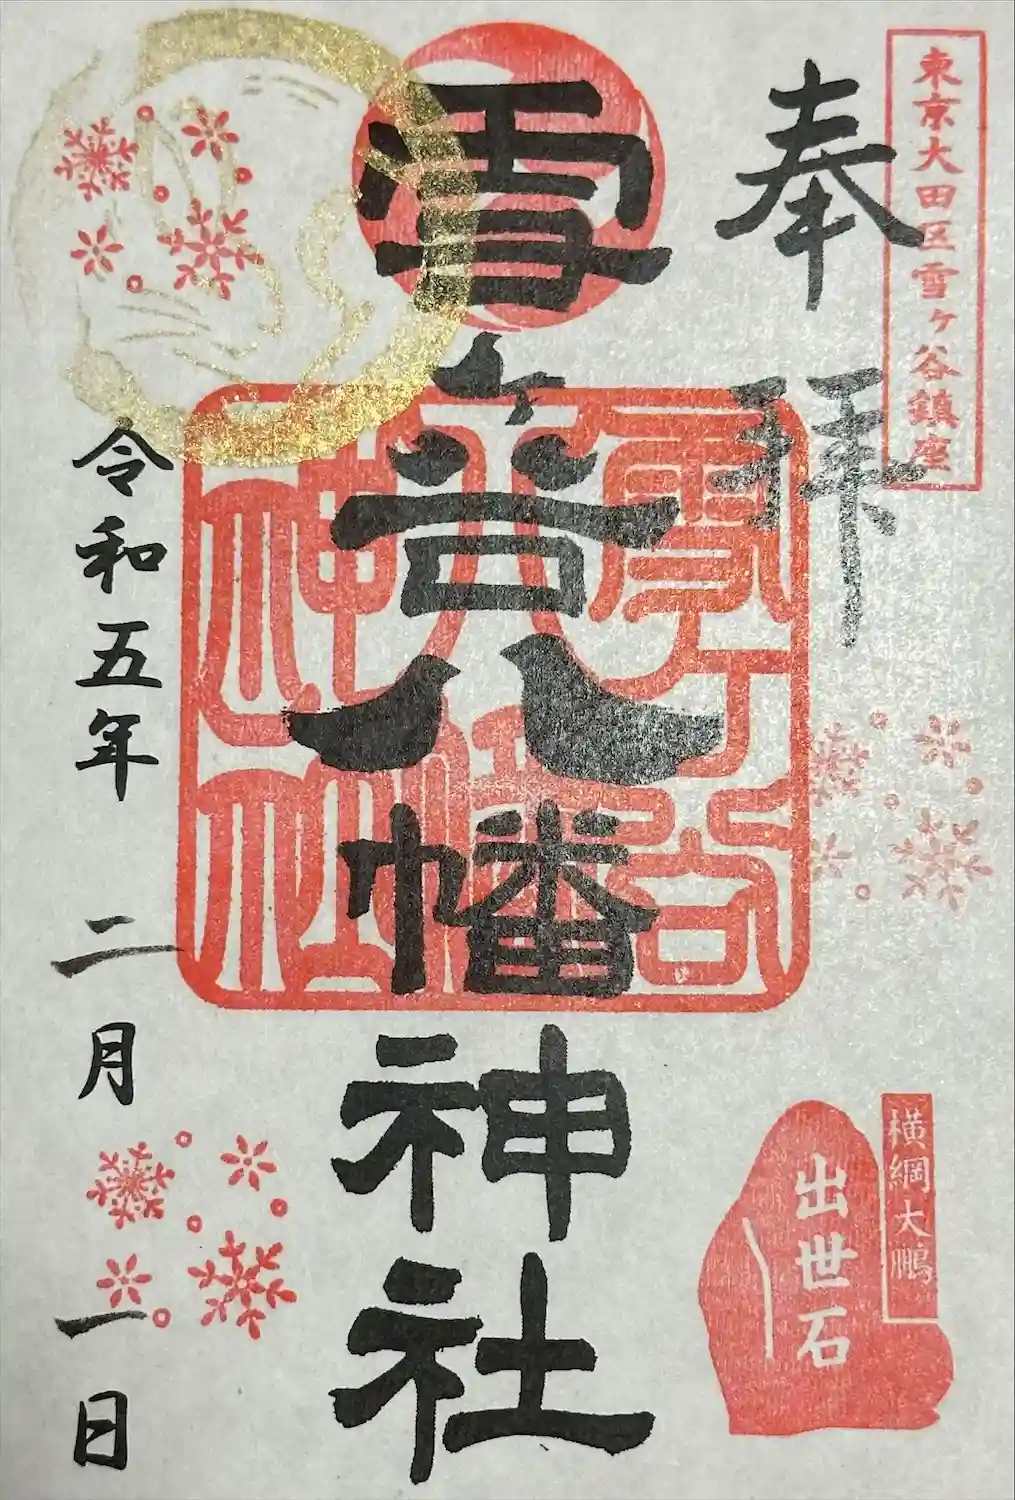 東京大田区雪ヶ谷鎮座
奉拝
雪ヶ谷八幡神社
雪ケ谷
八幡
神社
令和五年 二月 一日
横綱大鵬
出世石